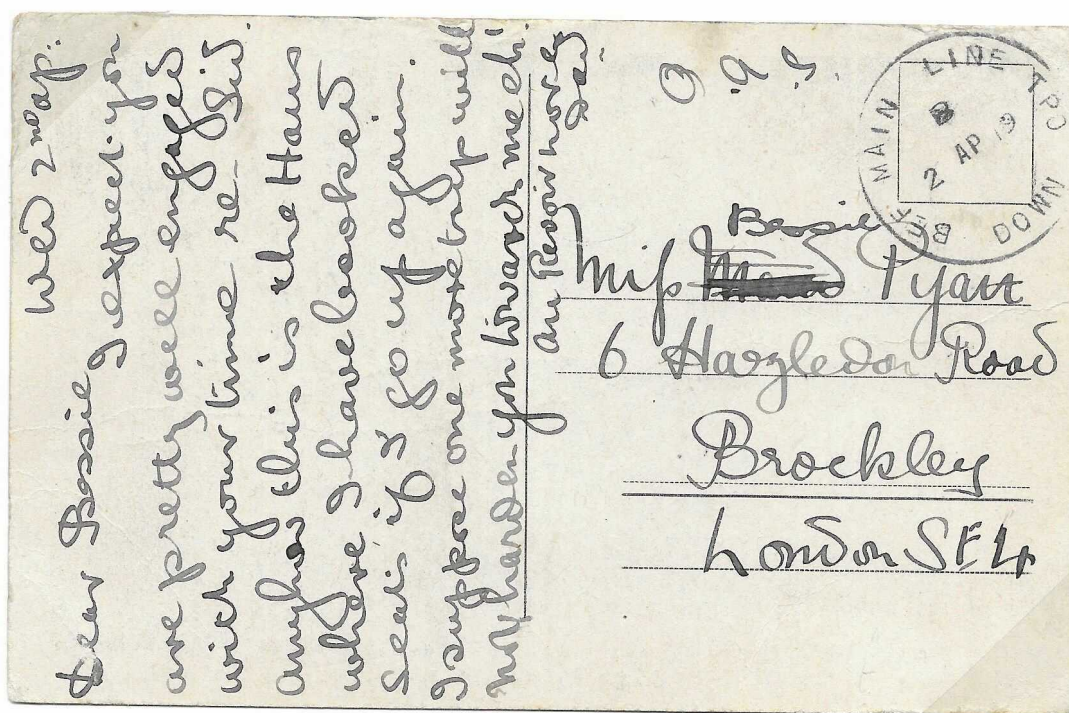 Wed 2nd Ap:
Dear Bessie, I expect you
are pretty well engaged
with your time re- Sid.
Anyhow this is the Haus
where I have booked
Seats if I go up again.
I suppose one more trip will
not harden you towards me ch!
Au Revoir
O.A.S
BEF. MAIN LINE TPO DOWN
2 AP 19
Miss Bessie Pyatt
6 Hazgledon Road
Brockley
London SE4